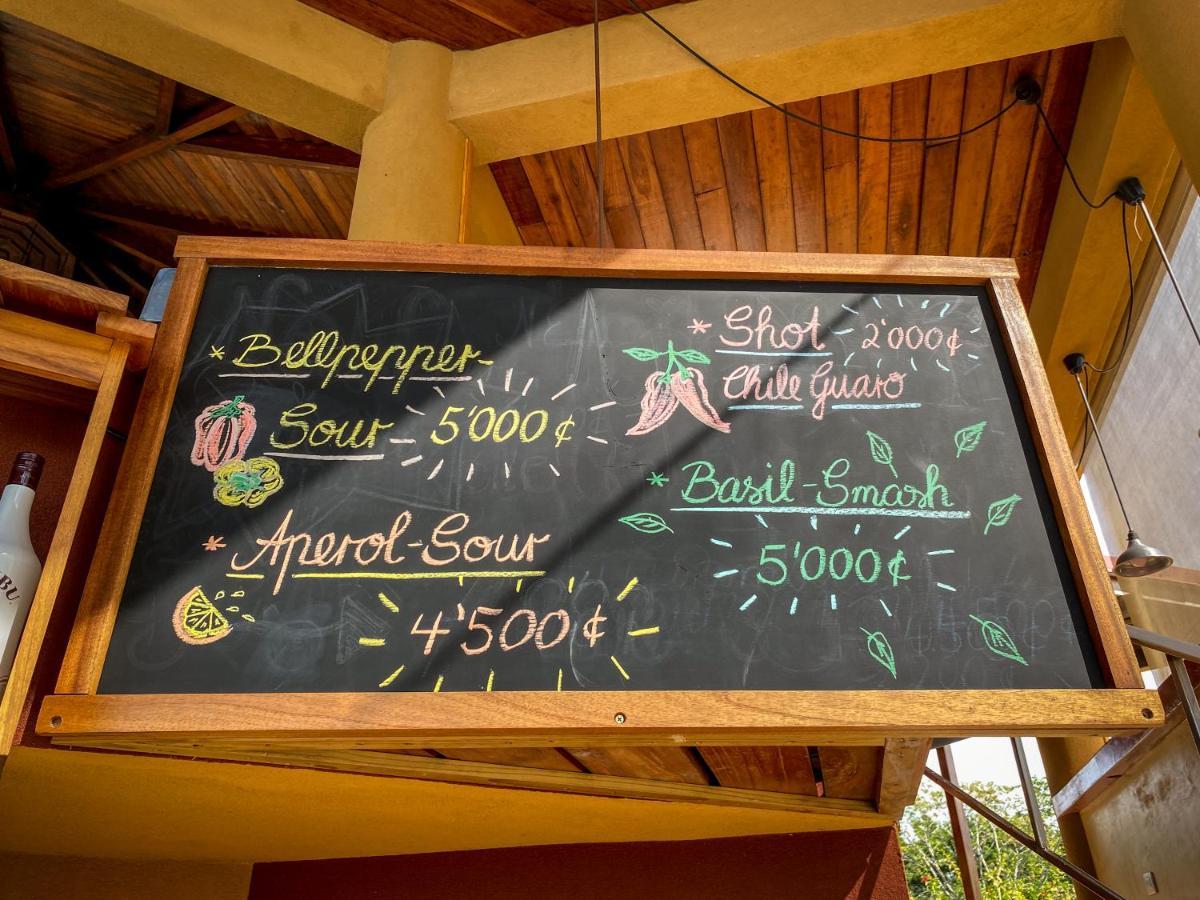 * Bellpepper-
Sour 5'000 ¢
* Aperol-Sour
4'500 ¢
* Shot 2'000 ¢
Chile Guaro
* Basil-Smash
5'000 ¢
BU